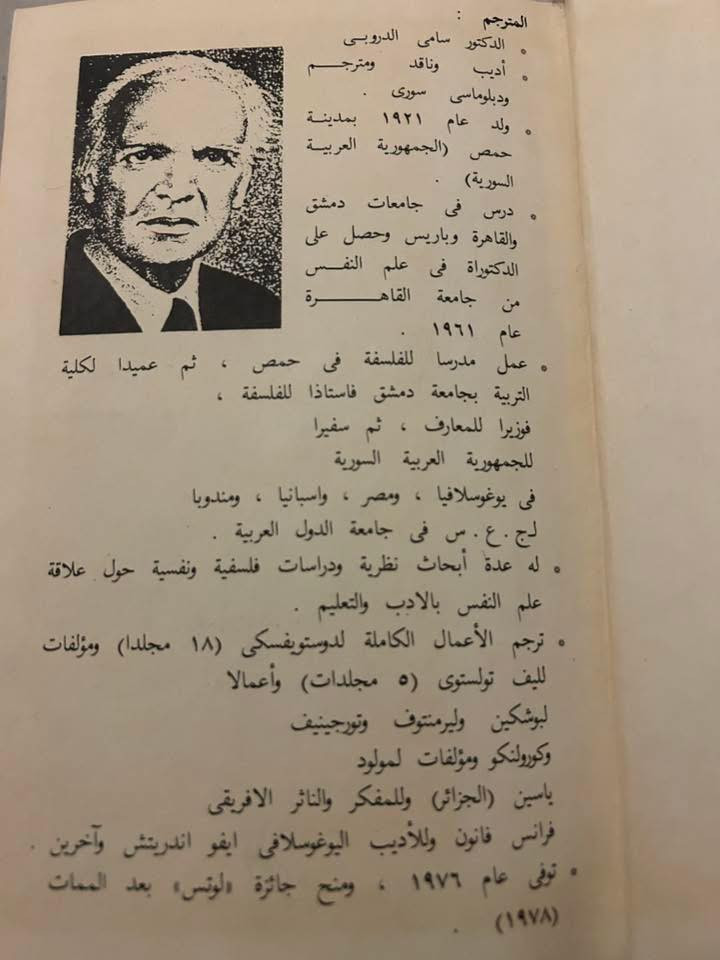 المترجم :
• الدكتور سامى الدروبى
• أديب وناقد ومترجم
ودبلوماسى سورى .
• ولد عام ١٩٢١ بمدينة
حمص (الجمهورية العربية
السورية) .
• درس فى جامعات دمشق
والقاهرة وباريس وحصل على
الدكتوراة فى علم النفس
من جامعة القاهرة
عام ١٩٦١ .
• عمل مدرسا للفلسفة فى حمص ، ثم عميدا لكلية
التربية بجامعة دمشق فاستاذا للفلسفة ،
فوزيرا للمعارف ، ثم سفيرا
للجمهورية العربية السورية
فى يوغوسلافيا ، ومصر ، واسبانيا ، ومندوبا
لـ ج . ع . س فى جامعة الدول العربية .
• له عدة أبحاث نظرية ودراسات فلسفية ونفسية حول علاقة
علم النفس بالادب والتعليم .
• ترجم الأعمال الكاملة لدوستويفسكى (١٨ مجلدا) ومؤلفات
لليف تولستوى (٥ مجلدات) وأعمالا
لبوشكين وليرمنتوف وتورجينيف
وكورولنكو ومؤلفات لمولود
ياسين (الجزائر) وللمفكر والناثر الافريقى
فرانس فانون وللأديب اليوغوسلافى ايفو اندريتش وآخرين .
• توفى عام ١٩٧٦ ، ومنح جائزة «لوتس» بعد الممات
(١٩٧٨) .